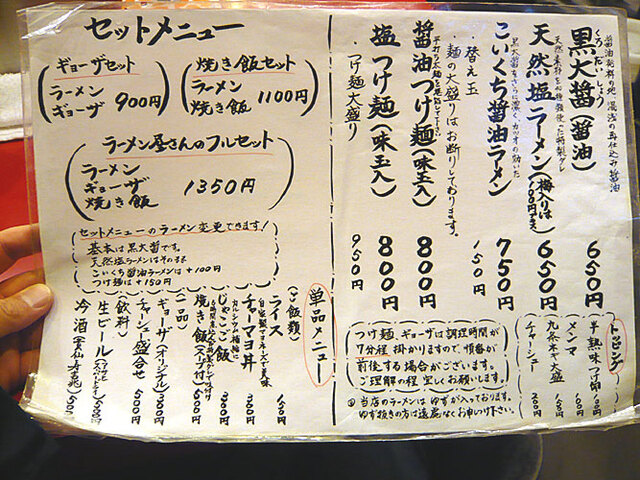 醤油発祥の地 湯浅の再仕込み醤油
くろだいしょう
黒大醤(醤油) 650円
天然塩ラーメン(梅入りは100円増) 650円
こいくち醤油ラーメン 750円
・替え玉 150
・麺の大盛りはお断りしております。
醤油つけ麺(味玉入) 800円
塩つけ麺(味玉入) 800円
・つけ麺大盛り 950円
トッピング
半熟味つけ卵 100円
メンマ 100円
九条ネギ大盛 150円
チャーシュー 200円
つけ麺 ギョーザは調理時間が
7分程掛かりますので、順番が
前後する場合がございます。
ご理解の程 宜しくお願いします。
当店のラーメンはゆずが入っております。
ゆず抜きの方は遠慮なくお申し付け下さい。
セットメニュー
焼き飯セット
ラーメン
焼き飯
1100円
ギョーザセット
ラーメン
ギョーザ
900円
ラーメン屋さんのフルセット
ラーメン
ギョーザ
焼き飯
1350円
セットメニューのラーメン変更できます!
基本は黒大醤です。
天然塩ラーメンはそのまま
こいくち醤油ラーメンは+100円
つけ麺は+150円
単品メニュー
(ご飯類)
ライス
チャーマヨ丼
じゃこご飯
焼き飯(スープ付)
(一品)
ギョーザ(オリジナル) 300円
チャーシュー盛合せ 500円
(飲料)
生ビール 500円
冷酒 500円